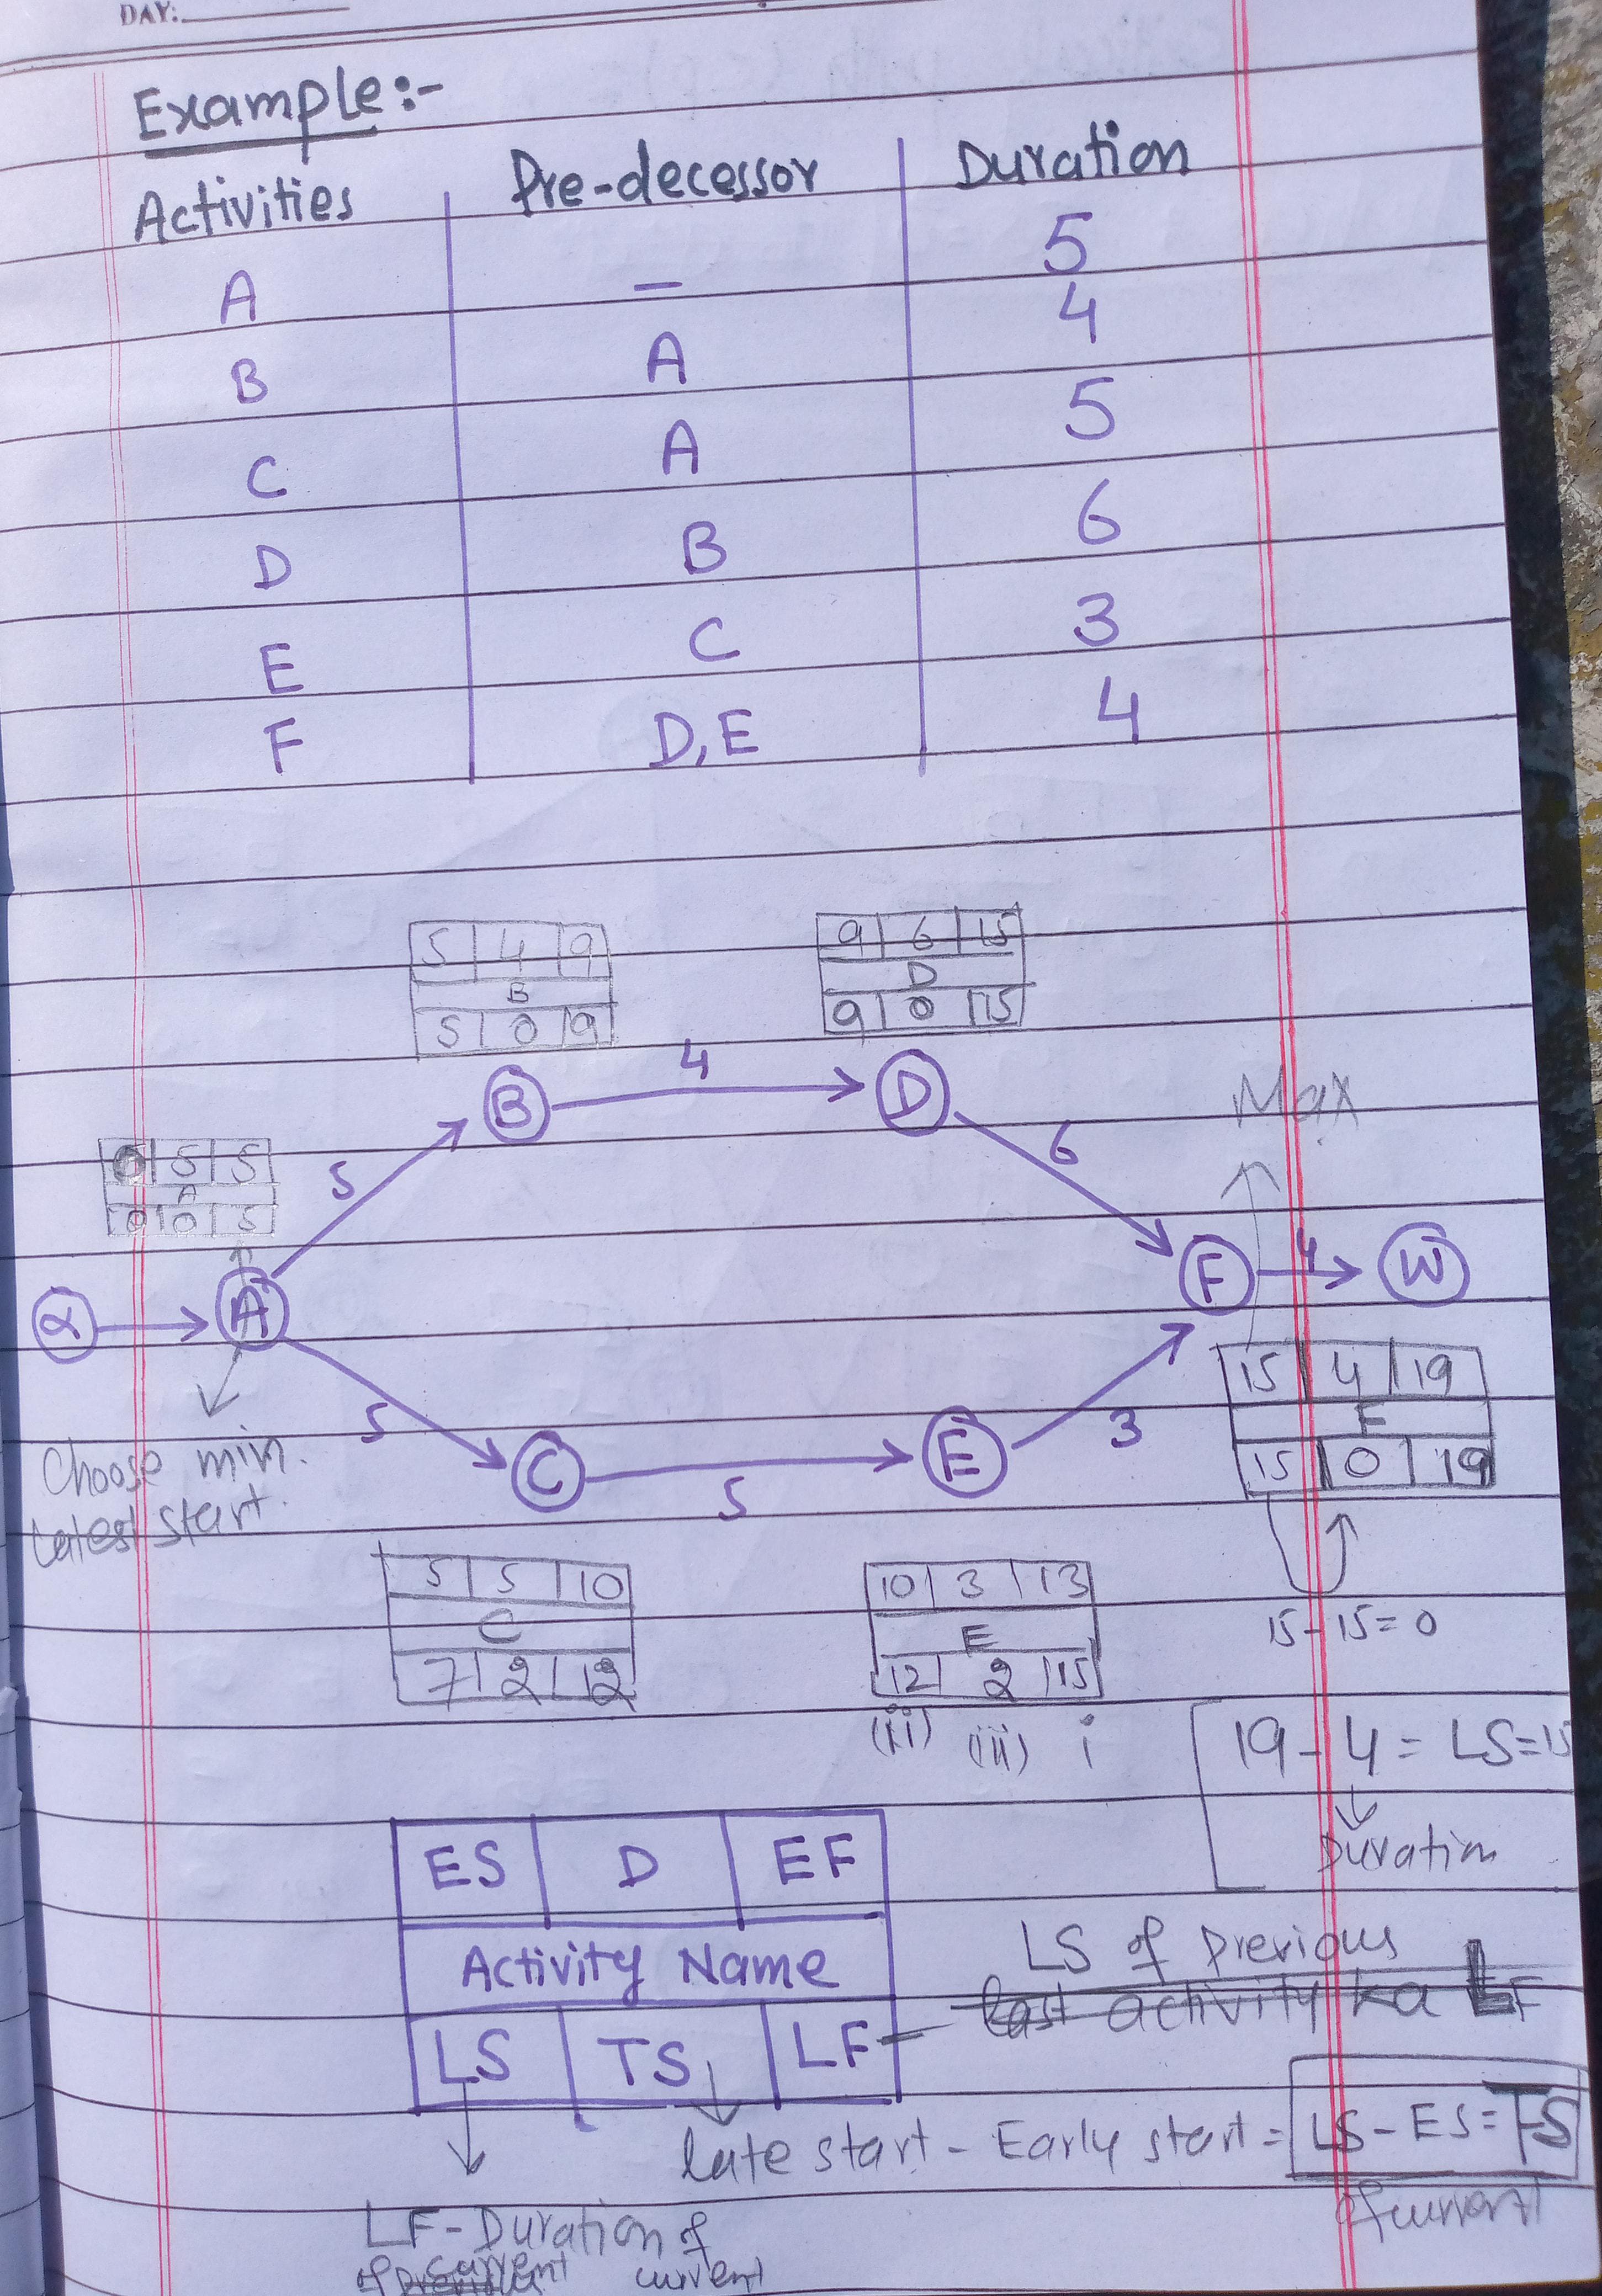 DAY:
Example:-
Activities Pre-decessor Duration
A — 5
B A 4
C A 5
D B 6
E C 3
F D,E 4
5 4 9
B
5 0 9
9 6 15
D
9 0 15
Max
0 5 5
A
0 0 5
α A 5 B 4 D 6 F 4 W
5 C 5 E 3
Choose min.
latest start.
15 4 19
F
15 0 19
15-15=0
5 5 10
C
7 2 12
10 3 13
E
12 2 15
(ii) (iii) i
19-4=LS=15
Duration
ES D EF
Activity Name
LS TS LF
LS of previous
last activity ka LF
late start - Early start = LS-ES=TS
of current
LF-Duration of
of current current